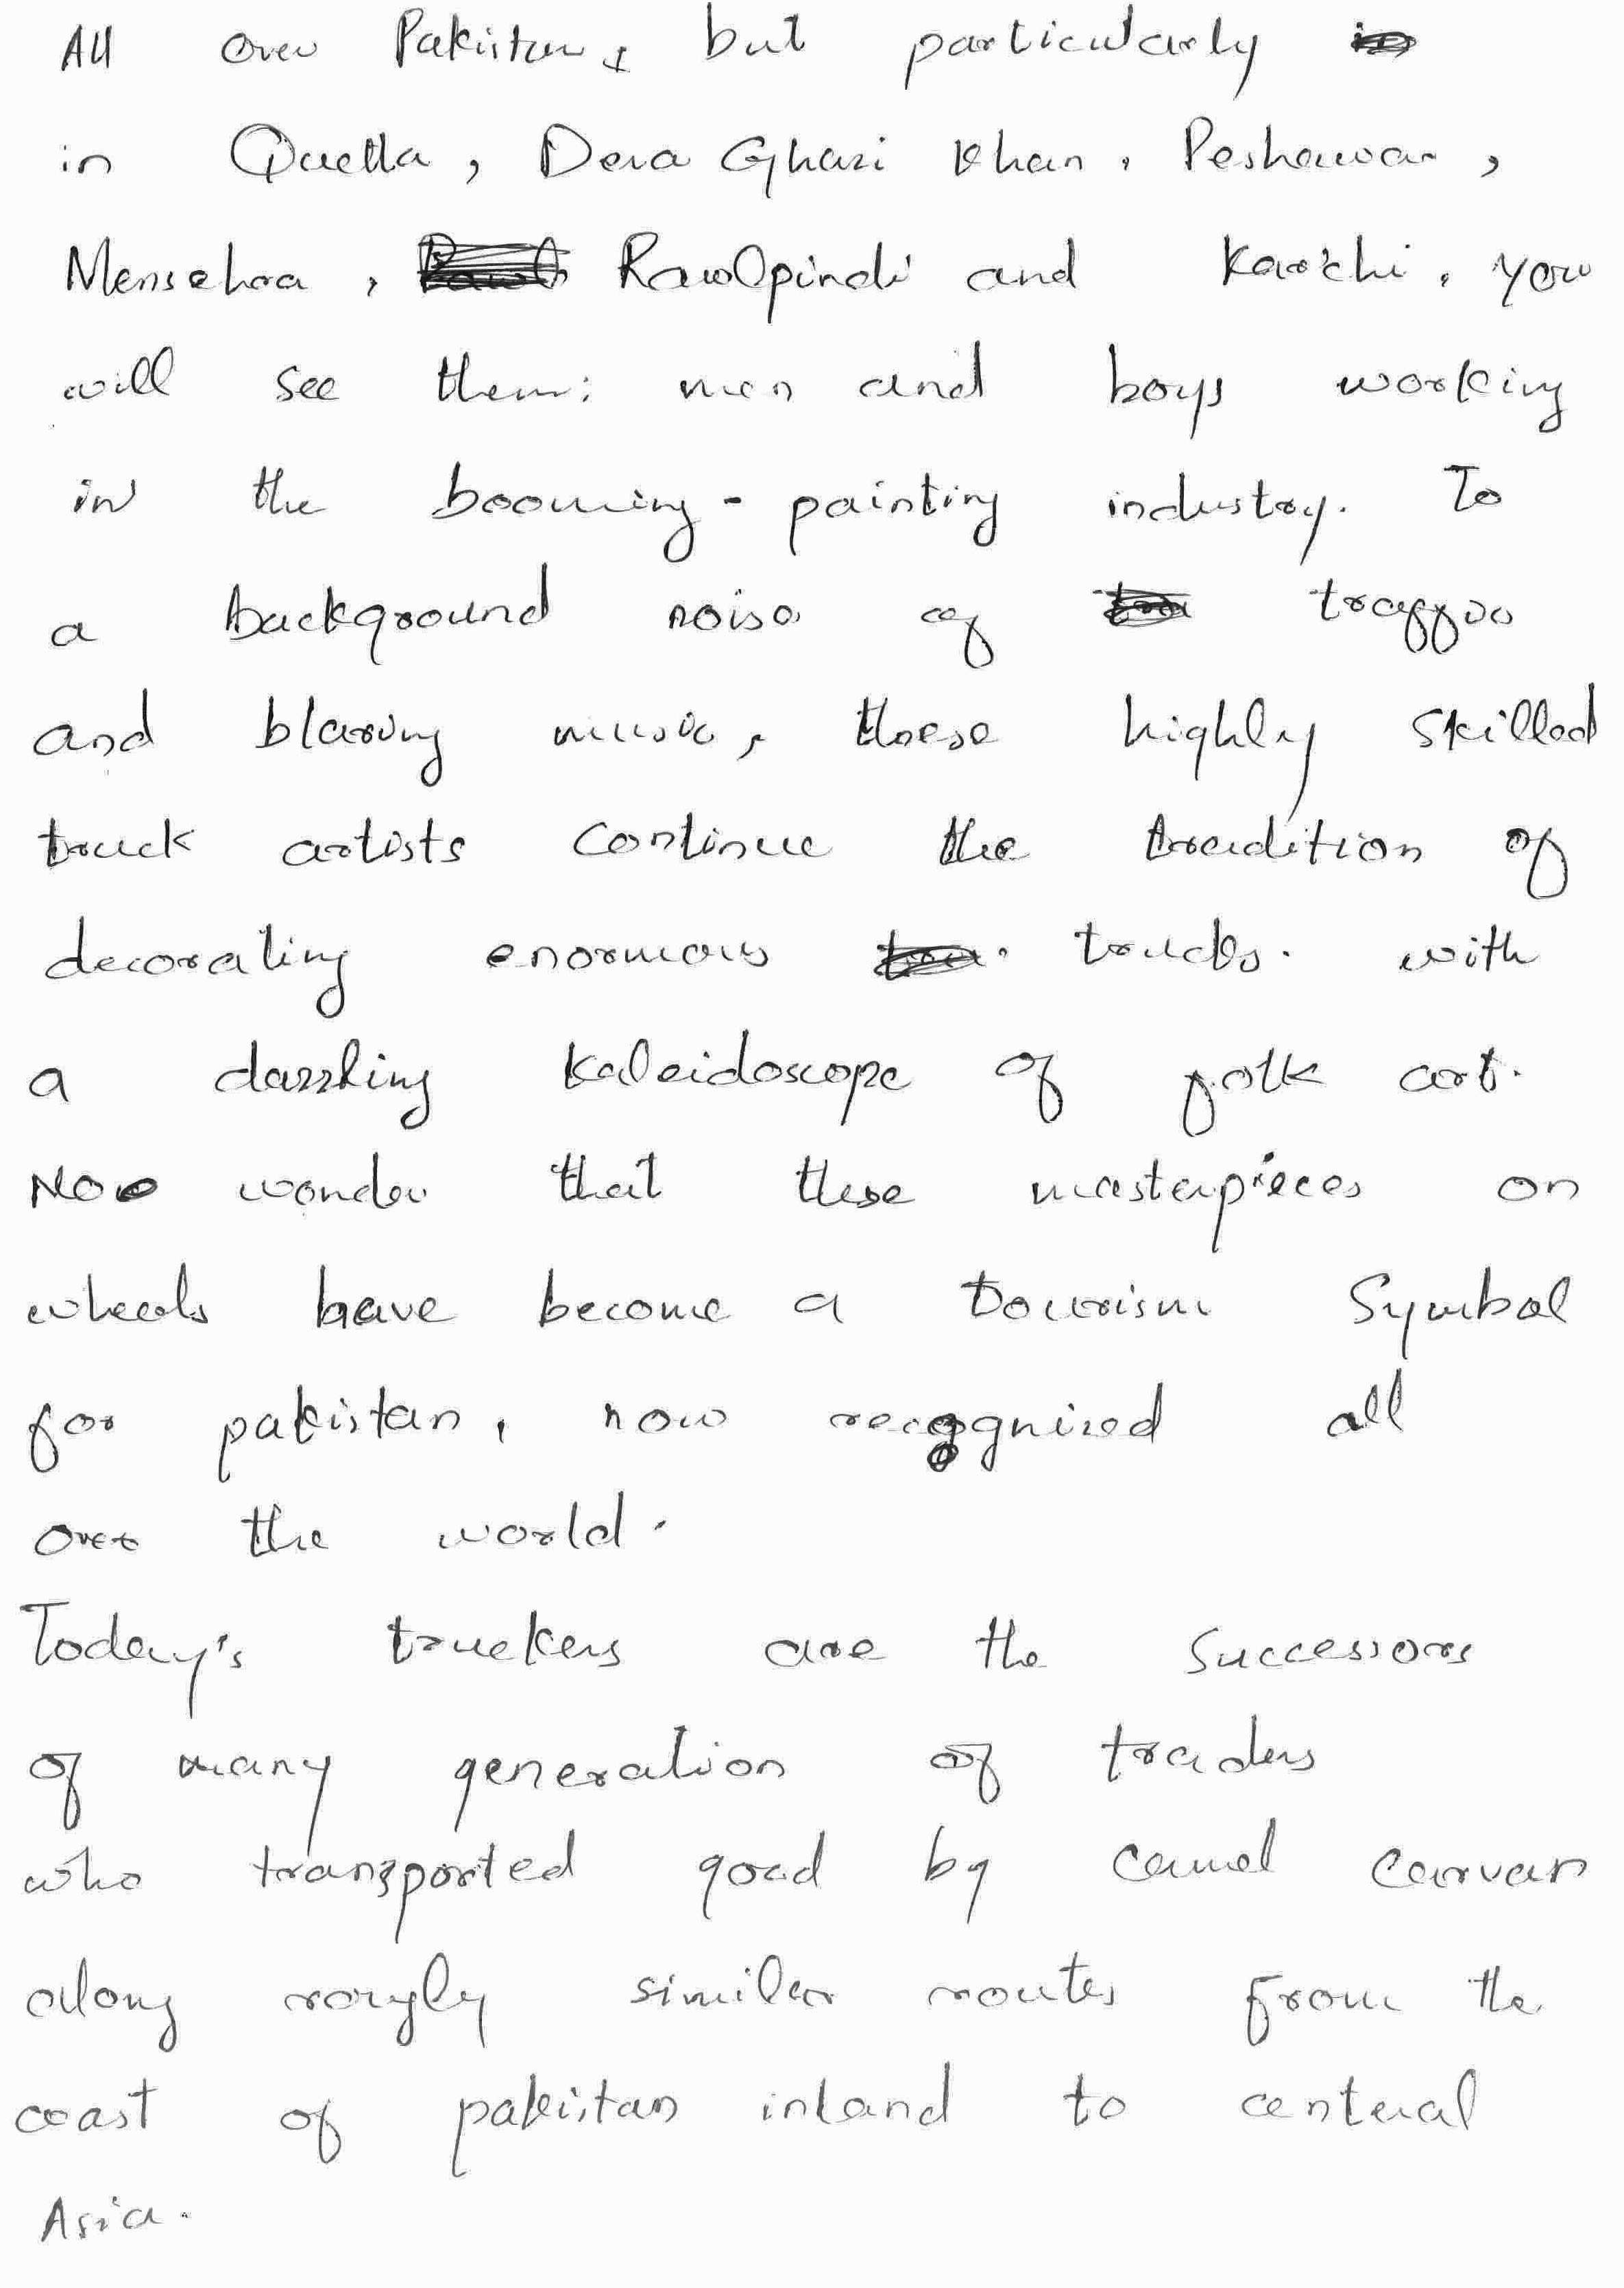 All over Pakistan, but particularly
in Quetta, Dera Ghazi Khan, Peshawar,
Mensehra, Rawlpindi and Karchi, you
will see them: men and boys working
in the booming-painting industry. To
a background noise of traffic
and blaring music, these highly skilled
truck artists continue the tradition of
decorating enormous trucks. with
a dazzling kaleidoscope of folk art.
No wonder that these masterpieces on
wheels have become a tourism Symbol
for pakistan, now recognized all
over the world.
Today's truckers are the successors
of many generation of traders
who transported good by camel carvan
along rougly similar routes from the
coast of pakistan inland to centeral
Asia.